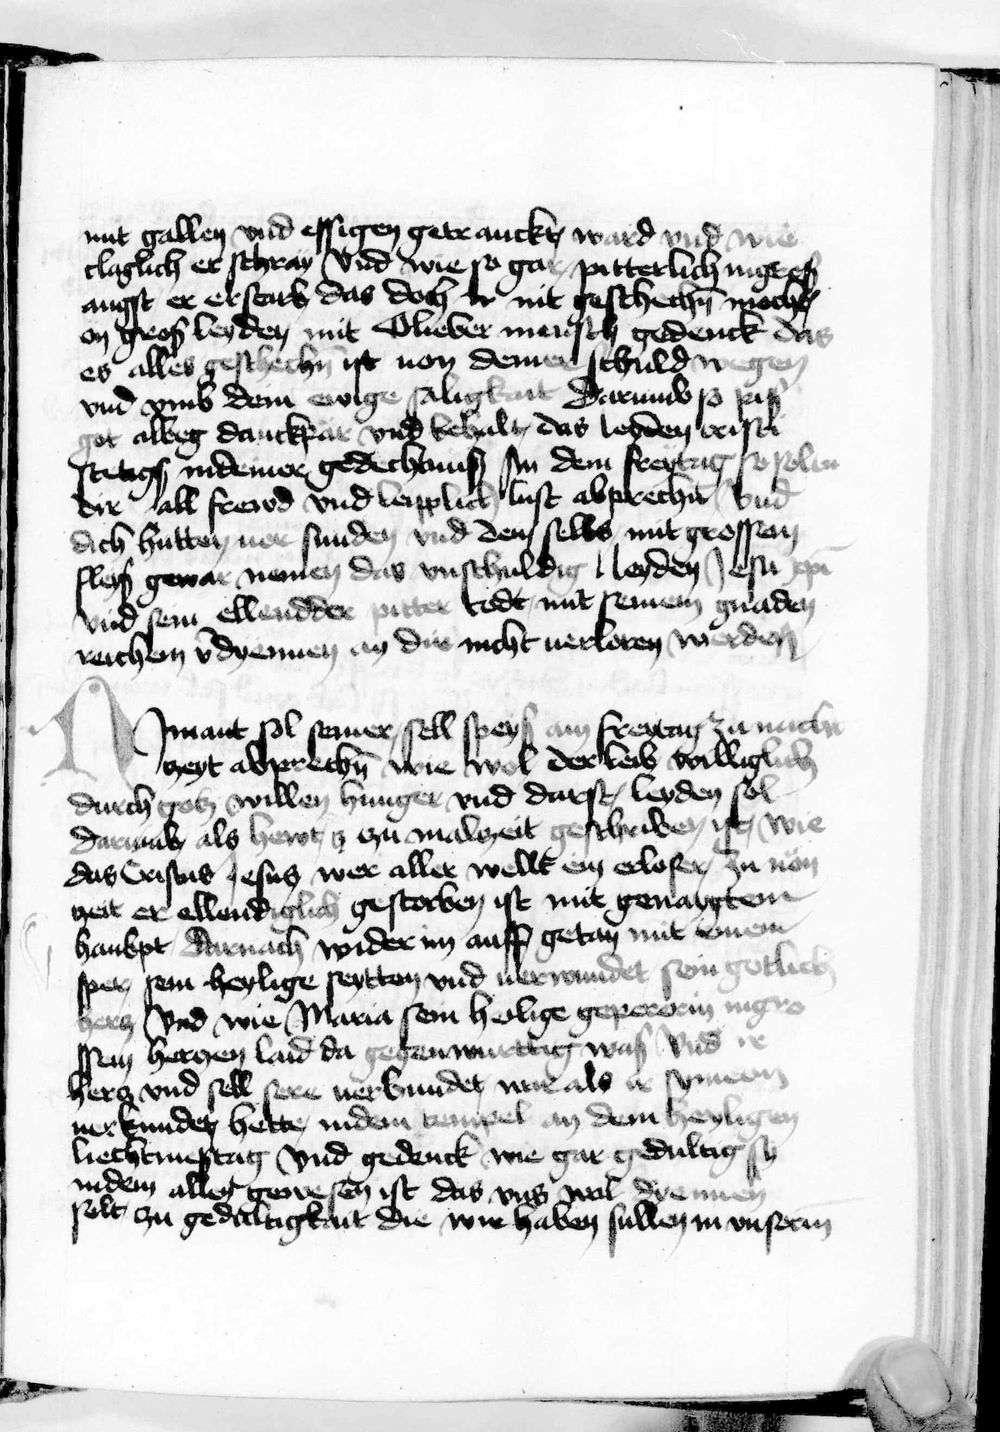 mit gallen vnd essigen getranckt ward vnd wie
claglich er schray Vnd wie so gar pitterlich in gross
angst er erstarb das doch ir nit geschechn mocht
on gross leyden mit O lieber mensch gedenck das
es alles geschechn ist von deiner schuld wegen
vnd vmb dein ewige saligkait Darumb so piss
got albeg danckpar vnd behalt das leyden cristi
stettigs in deiner gedechtnuss An dem freytag so solen
dir all frewd vnd leipplich lust abprechn vnd
dich hutten vor sunden vnd dem selbs mit grossem
fleyss gewar nemen das vnschuldig leyden Jesu xpi
vnd sein ellendder pitter todt mit seinem gnaden
reichem v̄dyennen an dir nicht verloren werden
Nimant sol seiner sell speyss am freytag zu nacht
zeyt abprechn wie wol der leib williglich
durch gotz willen hunger vnd durst leyden sol
darumb als hewt zu malzeit geschriben ist wie
das Cristus Jesus wer aller wellt ein erloser zu non
zeit er ellendiglich gestorben ist mit genaygtem
haubpt Darnach wider im auff getan mit einem
sper sein heylige seytten vnd verwundet sein gotlich
hertz Vnd wie Maria sein heilige gepererin in gro
ssem hertzen laid da gegenwurttig wass Vnd ir
hertz vnd sell sere verbundet war als ir symeon
verkundet hette in dem tempel an dem heyligen
liechtmesstag Vnd gedenck wie gar gedultig sy
in dem allen gewesen ist das vns wol dyennen
solt zu gedultigkait die wir haben sullen in vnserm